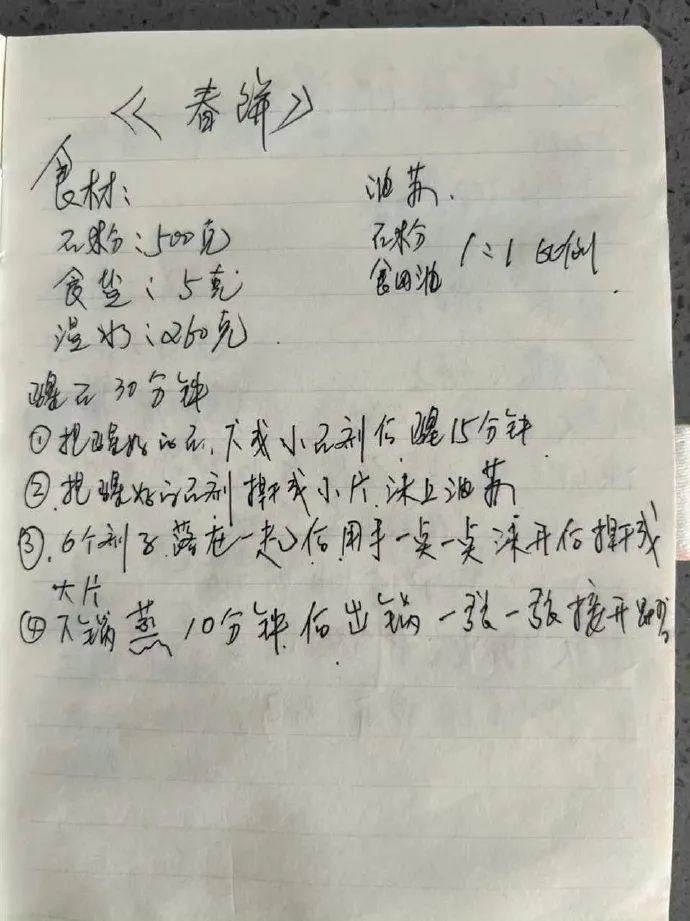 《春饼》
食材：
石粉：500克
食盐：5克
温水：260克
油苏.
石粉
食用油 1:1比例.
醒石30分钟
①把醒好的石,下成小石剂后醒15分钟
②.把醒好的石剂擀成小片.沫上油苏
③.6个剂子落在一起后用手一点一点 开后擀成
大片
④下锅蒸10分钟.后出锅一张一张接开